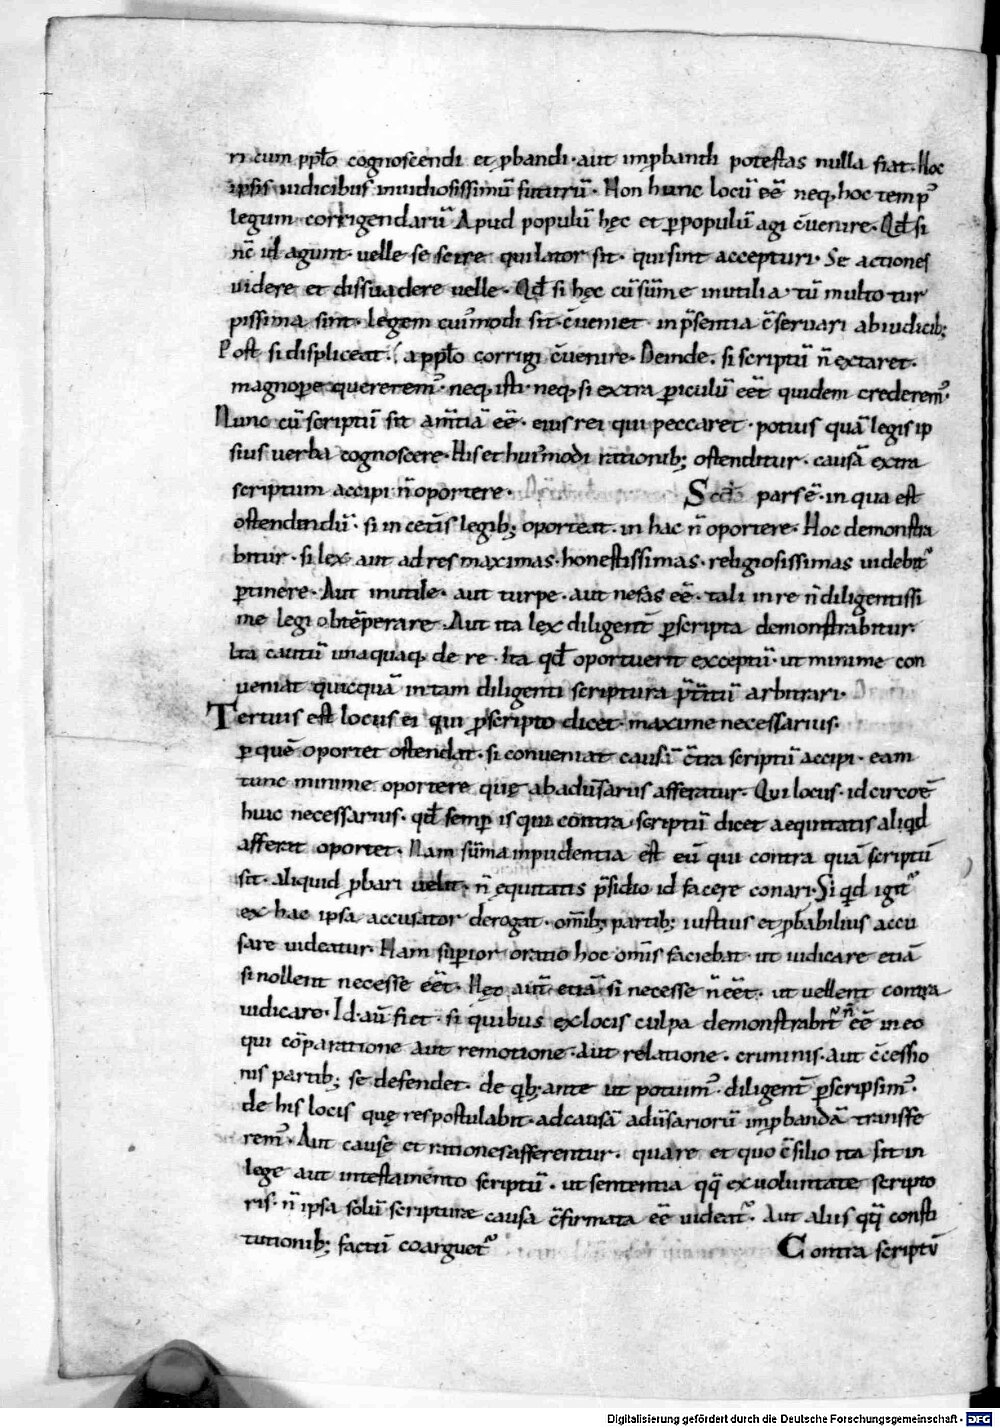 ri cum pplo cognoscendi et pbandi · aut inpbandi potestas nulla fiat · Hoc
ipsis iudicibus inuidiosissimū futurū · Non hunc locū eē neq; hoc temp᾿
legum corrigendarū Apud populū hęc et p populū agi c̄uenire · Qd̄ si
nc̄ id agunt · uelle se scire qui lator sit · qui sint accepturi · Se actiones
uidere et dissuadere uelle · Qd̄ si hęc cū sūme inutilia · tū multo tur
pissima sint · legem cui᾿modi sit · c̄ueniet in p̄sentia c̄seruari ab iudicib;
Post si displiceat · a pplo corrigi c̄uenire · Deinde · si scriptū n̄ extaret ·
magnopere quererem᾿ · neq; isti · neq; si extra piculū eēt quidem crederem᾿ ·
Nunc cū scriptū sit am̄tiā eē · eius rei qui peccaret · potius quā legis ip
sius uerba cognoscere · His et hui᾿modi rationib; ostenditur · causā extra
scriptum accipi n̄ oportere · Scd̄a pars ē · in qua est
ostendendū · si in cet̄is legib; oporteat · in hac n̄ oportere · Hoc demonstra
bitur · si lex aut ad res maximas · honestissimas · religiosissimas uidebit᾿
ptinere · Aut inutile · aut turpe · aut nefas eē · tali in re n̄ diligentissi
me legi obtēperare · Aut ita lex diligent̄ pscripta demonstrabitur ·
Ita cautū unaquaq; de re · Ita qd̄ oportuerit exceptū · ut minime con
ueniat quicquā in tam diligenti scriptura p̄t̄itū arbitrari ·
Tertius est locus ei qui p scripto dicet · maxime necessarius ·
p quē oportet ostendat · si conueniat causā c̄tra scriptū accipi · eam
tunc minime oportere quę ab adūsariis afferatur · Qui locus · idcirco ē
huic necessarius · qd̄ semp is qui contra scriptū dicet aequitatis aliqd
afferat oportet · Nam sūma inpudentia est eū qui contra quā scriptū
sit · aliquid pbari uelit · n̄ equitatis p̄sidio id facere conari · Si qd igit᾿
ex hac ipsa accusator derogat · om̄ib; partib; iustius et pbabilius accu
sare uideatur · Nam supior oratio hoc om̄is faciebat · ut iudicare etiā
si nollent necesse eēt · Hęc aut̄ etiā si necesse n̄ eēt · ut uellent contra
iudicare · Id aū fiet · si quibus ex locis culpa demonstrabit᾿ n̄ eē in eo
qui cōparatione aut remotione · aut relatione · criminis · aut c̄cessio
nis partib; se defendet · de qb; ante ut potuim᾿ · diligent̄ pscripsim᾿ ·
de his locis quę res postulabit · ad causā adūsariorū inpbandā transfe
rem᾿ · Aut causę et rationes afferentur · quare et quo c̄silio ita sit in
lege aut in testamento scriptū · ut sententia qq̄ ex uoluntate scripto
ris · n̄ ipsa solū scripturae causa c̄firmata eē uideat᾿ · Aut aliis qq̄ consti
tutionib; factū coarguet᾿ Contra scriptū
Digitalisierung gefördert durch die Deutsche Forschungsgemeinschaft - DFG